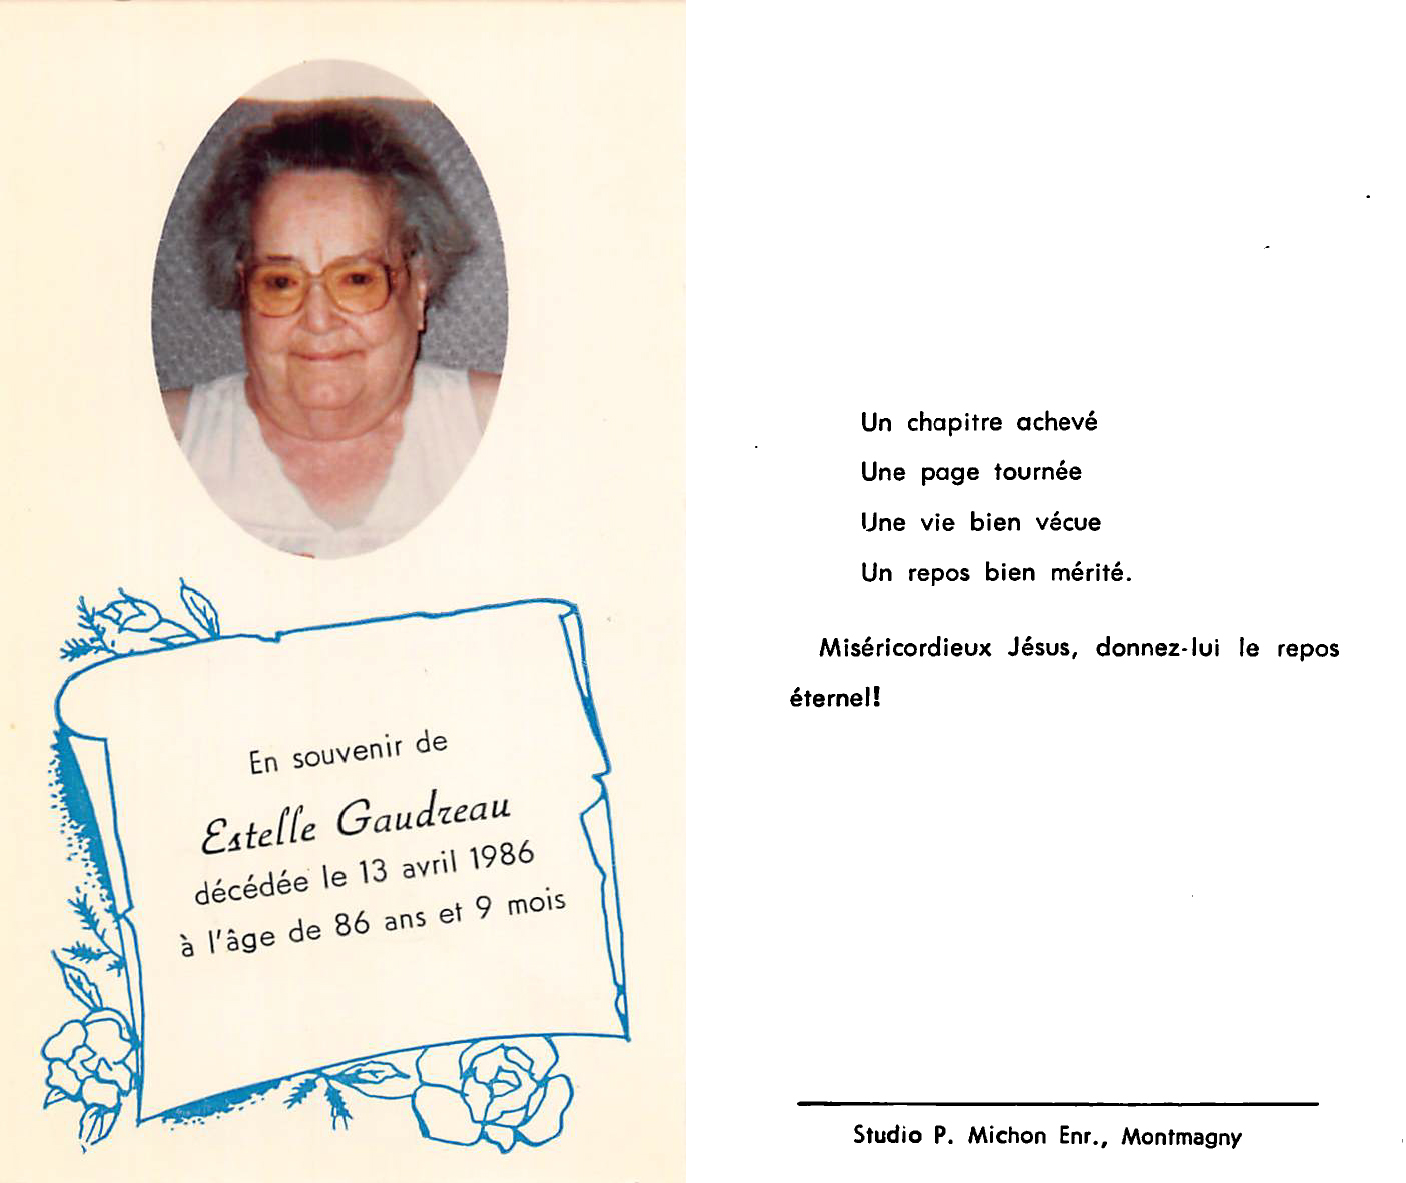 En souvenir de
Estelle Gaudreau
décédée le 13 avril 1986
à l'âge de 86 ans et 9 mois
Un chapitre achevé
Une page tournée
Une vie bien vécue
Un repos bien mérité.
Miséricordieux Jésus, donnez-lui le repos
éternel!
Studio P. Michon Enr., Montmagny